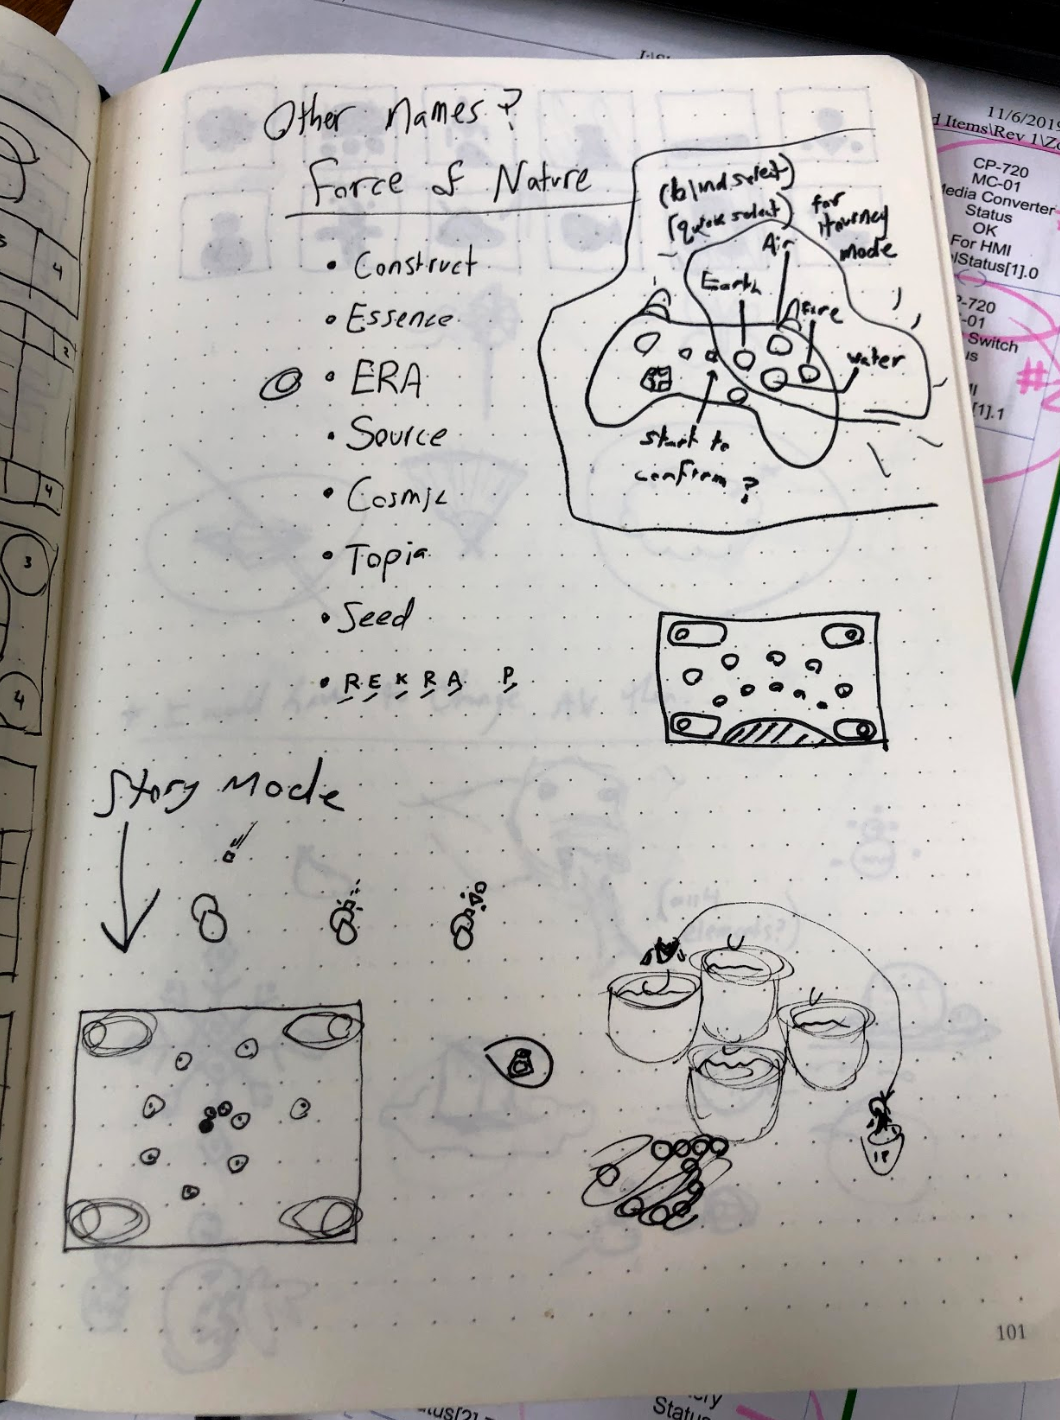 Other Names?
Force of Nature
• Construct
• Essence
• ERA
• Source
• Cosmic
• Topia
• Seed
• R E K R A P
(blind select)
(quick select)
for
tourney
mode
Air
Earth
Fire
water
start to
confirm?
Story Mode
1P
101
11/6/2019
d Items\Rev 1\Zo
CP-720
MC-01
Media Converter
Status
OK
For HMI
lStatus[1].0
P-720
-01
Switch
us
[1].1
#
4
2
4
3
4
Status